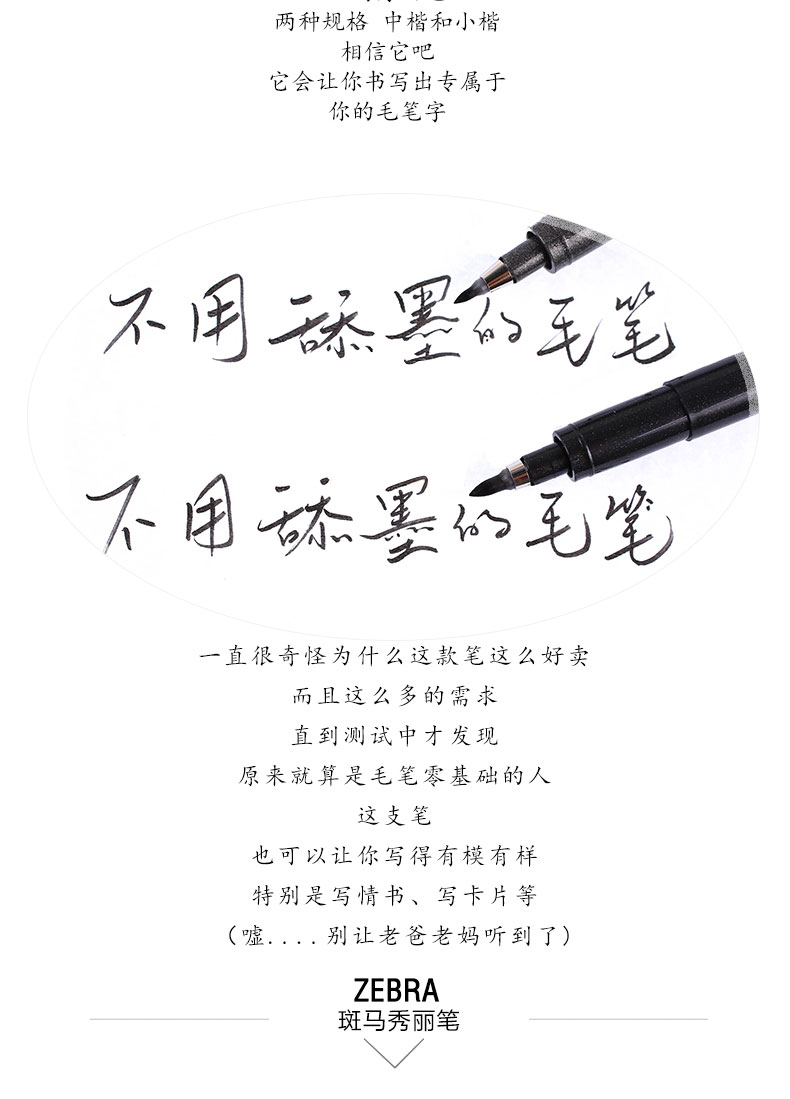 两种规格 中楷和小楷
相信它吧
它会让你书写出专属于
你的毛笔字
不用舔墨的毛笔
不用舔墨的毛笔
一直很奇怪为什么这款笔这么好卖
而且这么多的需求
直到测试中才发现
原来就算是毛笔零基础的人
这支笔
也可以让你写得有模有样
特别是写情书、写卡片等
（嘘....别让老爸老妈听到了）
ZEBRA
斑马秀丽笔